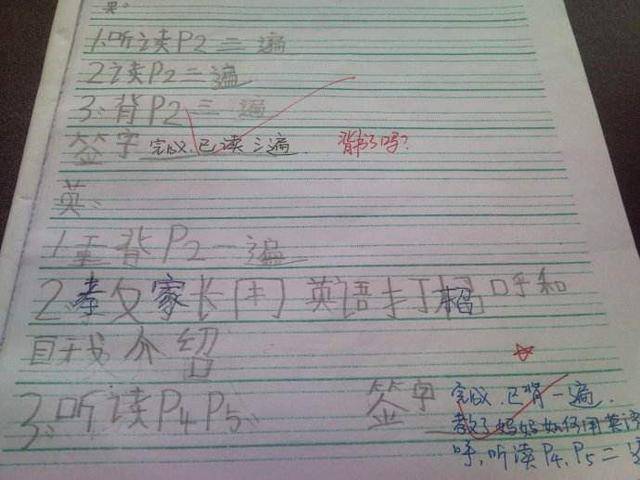 1.听读P2 三遍
2读P2三遍
3.背P2三遍
签字 完成.已读三遍. 背了吗?
英:
1重背P2一遍
2教家长用英语打招呼和
自我介绍
3.听读P4P5. 签字 完成.已背一遍.
教了妈妈如何用英语
呼,听读P4,P5二